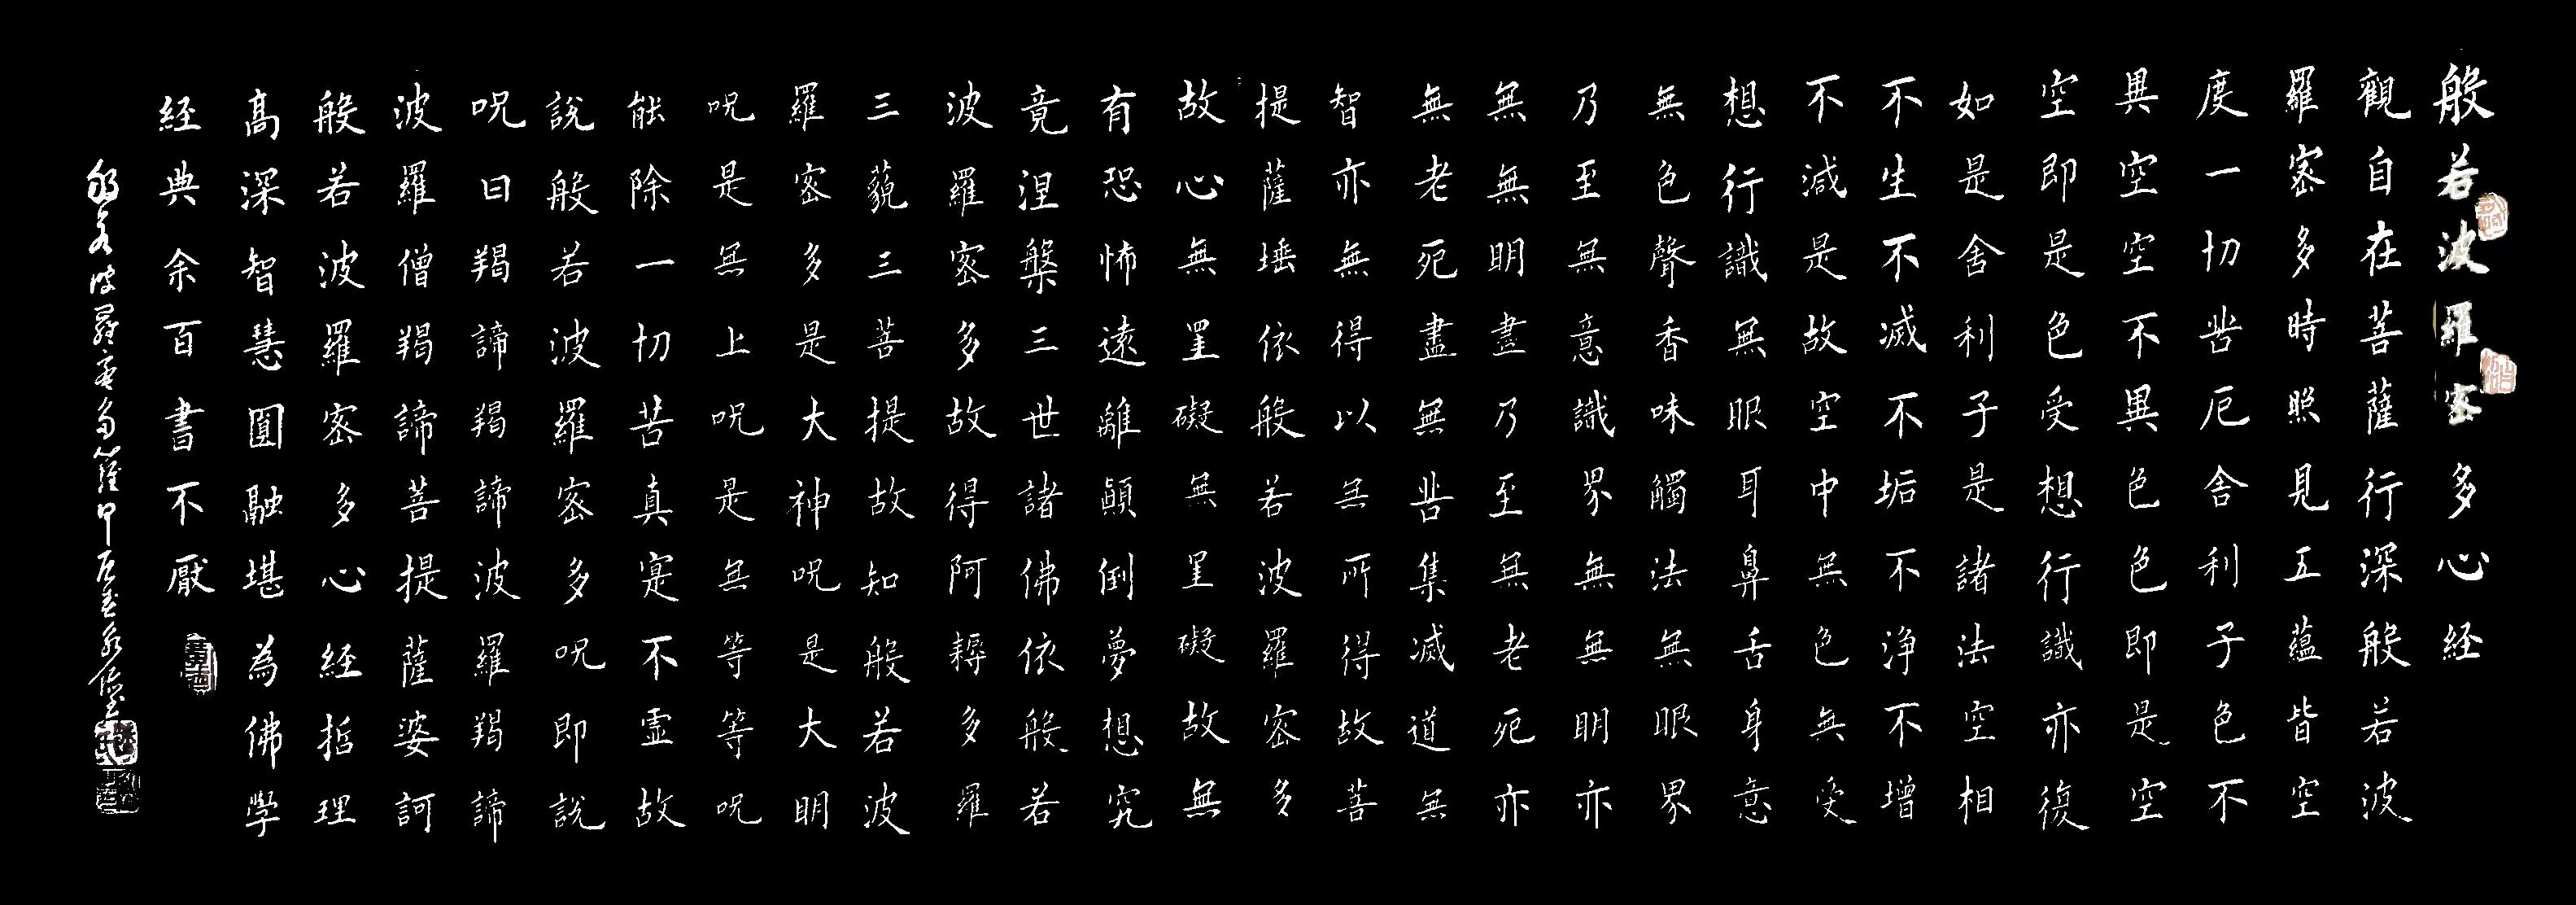 般若波羅密多心経
觀自在菩薩行深般若波
羅密多時照見五蘊皆空
度一切苦厄舍利子色不
異空空不異色色即是空
空即是色受想行識亦復
如是舍利子是諸法空相
不生不滅不垢不淨不增
不減是故空中無色無受
想行識無眼耳鼻舌身意
無色聲香味觸法無眼界
乃至無意識界無無明亦
無無明盡乃至無老死亦
無老死盡無苦集滅道無
智亦無得以無所得故菩
提薩埵依般若波羅密多
故心無罣礙無罣礙故無
有恐怖遠離顛倒夢想究
竟涅槃三世諸佛依般若
波羅密多故得阿耨多羅
三藐三菩提故知般若波
羅密多是大神呪是大明
呪是無上呪是無等等呪
能除一切苦真寔不虚故
說般若波羅密多呪即說
呪曰羯諦羯諦波羅羯諦
波羅僧羯諦菩提薩婆訶
般若波羅密多心経哲理
高深智慧圓融堪為佛學
経典余百書不厭